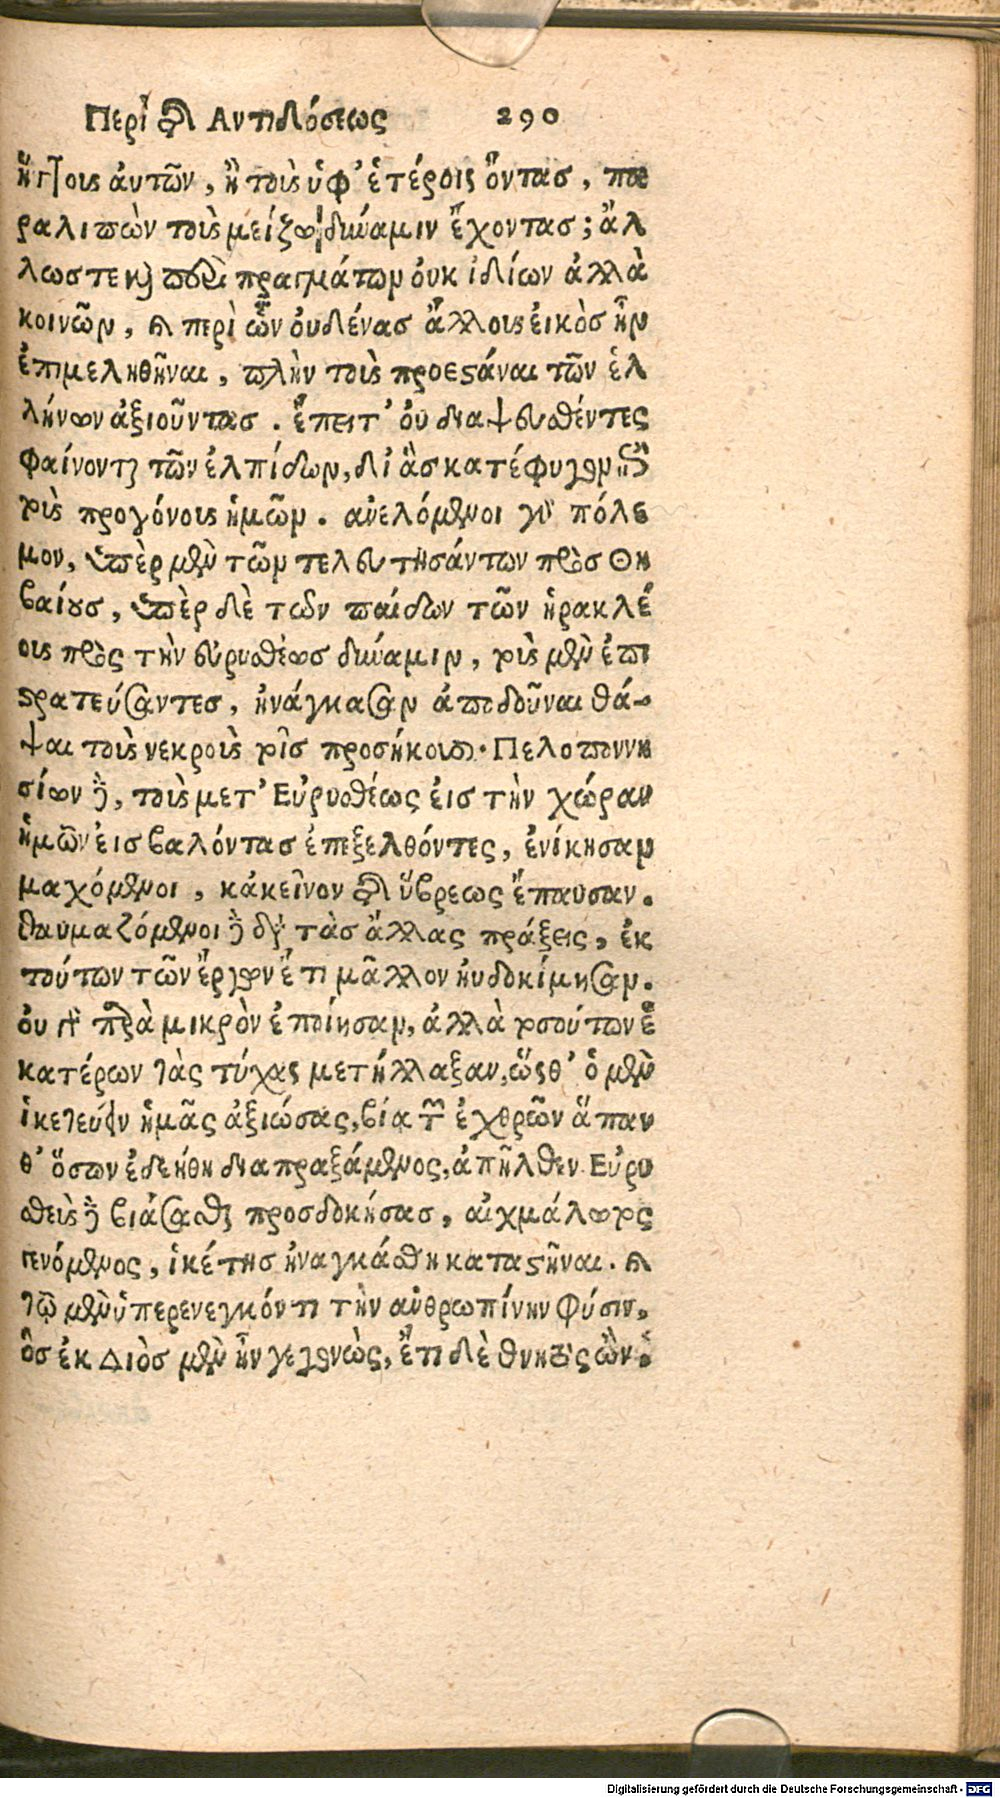 Περὶ τῆς Αντιδόσεως 290
ἥττους αὐτῶν, ἢ τοὺς ὑφ' ἑτέροις ὄντας, πα
ραλιπὼν τοὺς μείζω δύναμιν ἔχοντας; ἄλ
λως τε καὶ περὶ πραγμάτων οὐκ ἰδίων ἀλλὰ
κοινῶν, καὶ περὶ ὧν οὐδένας ἄλλους εἰκὸς ἦν
ἐπιμεληθῆναι, πλὴν τοὺς προεστάναι τῶν ἑλ
λήνων ἀξιοῦντας. ἔπειτ' οὐ διαψευσθέντες
φαίνονται τῶν ἐλπίδων, δι' ἃς κατέφυγον ἐπὶ
τοὺς προγόνους ἡμῶν. ἀνελόμενοι γὰρ πόλε
μον, ὑπὲρ μὲν τῶν τελευτησάντων πρὸς Θη
βαίους, ὑπὲρ δὲ τῶν παίδων τῶν ἡρακλέ
ους πρὸς τὴν εὐρυσθέως δύναμιν, τοὺς μὲν ἐπι
στρατεύσαντες, ἠνάγκασαν ἀποδοῦναι θά-
ψαι τοὺς νεκροὺς τοῖς προσήκουσι. Πελοποννη
σίων δὲ, τοὺς μετ' Εὐρυσθέως εἰς τὴν χώραν
ἡμῶν εἰσβαλόντας ἐπεξελθόντες, ἐνίκησαν
μαχόμενοι, κἀκεῖνον τῆς ὕβρεως ἔπαυσαν.
θαυμαζόμενοι δὲ διὰ τὰς ἄλλας πράξεις, ἐκ
τούτων τῶν ἔργων ἔτι μᾶλλον ηὐδοκίμησαν.
οὐ γὰρ παρὰ μικρὸν ἐποίησαν, ἀλλὰ τοσούτων ἑ
κατέρων τὰς τύχας μετήλλαξαν, ὥσθ' ὁ μὲν
ἱκετεύειν ἡμᾶς ἀξιώσας, βίᾳ τῶν ἐχθρῶν ἅπαν
θ' ὅσων ἐδεήθη διαπραξάμενος, ἀπῆλθεν. Εὐρυ
σθεὺς δὲ βιάσασθαι προσδοκήσας, αἰχμάλωτος
γενόμενος, ἱκέτης ἠναγκάσθη καταστῆναι. καὶ
τῷ μὲν ὑπερενεγκόντι τὴν ἀνθρωπίνην φύσιν,
ὃς ἐκ Διὸς μὲν ἦν γεγονὼς, ἔτι δὲ θνητὸς ὢν
Digitalisierung gefördert durch die Deutsche Forschungsgemeinschaft - DFG